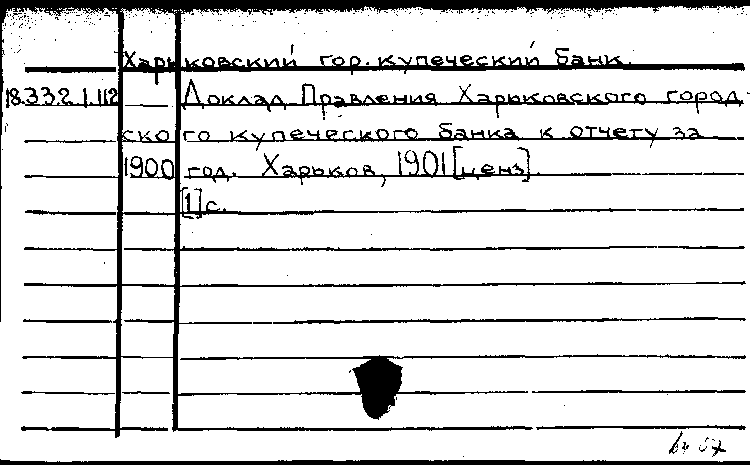 Харьковский гор. купеческий банк.
18.332.1.112 Доклад Правления Харьковского город-
ского купеческого банка к отчету за
1900 год. Харьков, 1901 [ценз].
[1] с.